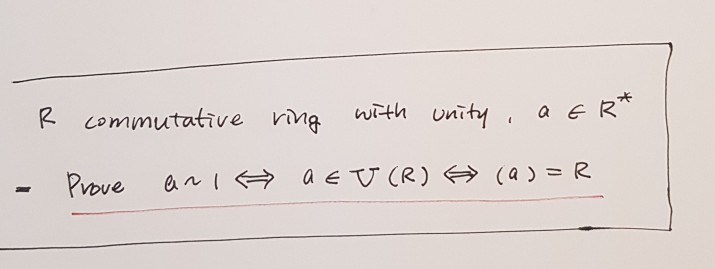 R commutative ring with unity, a ∈ R*
- Prove a ~ 1 ⟺ a ∈ U(R) ⟺ (a) = R